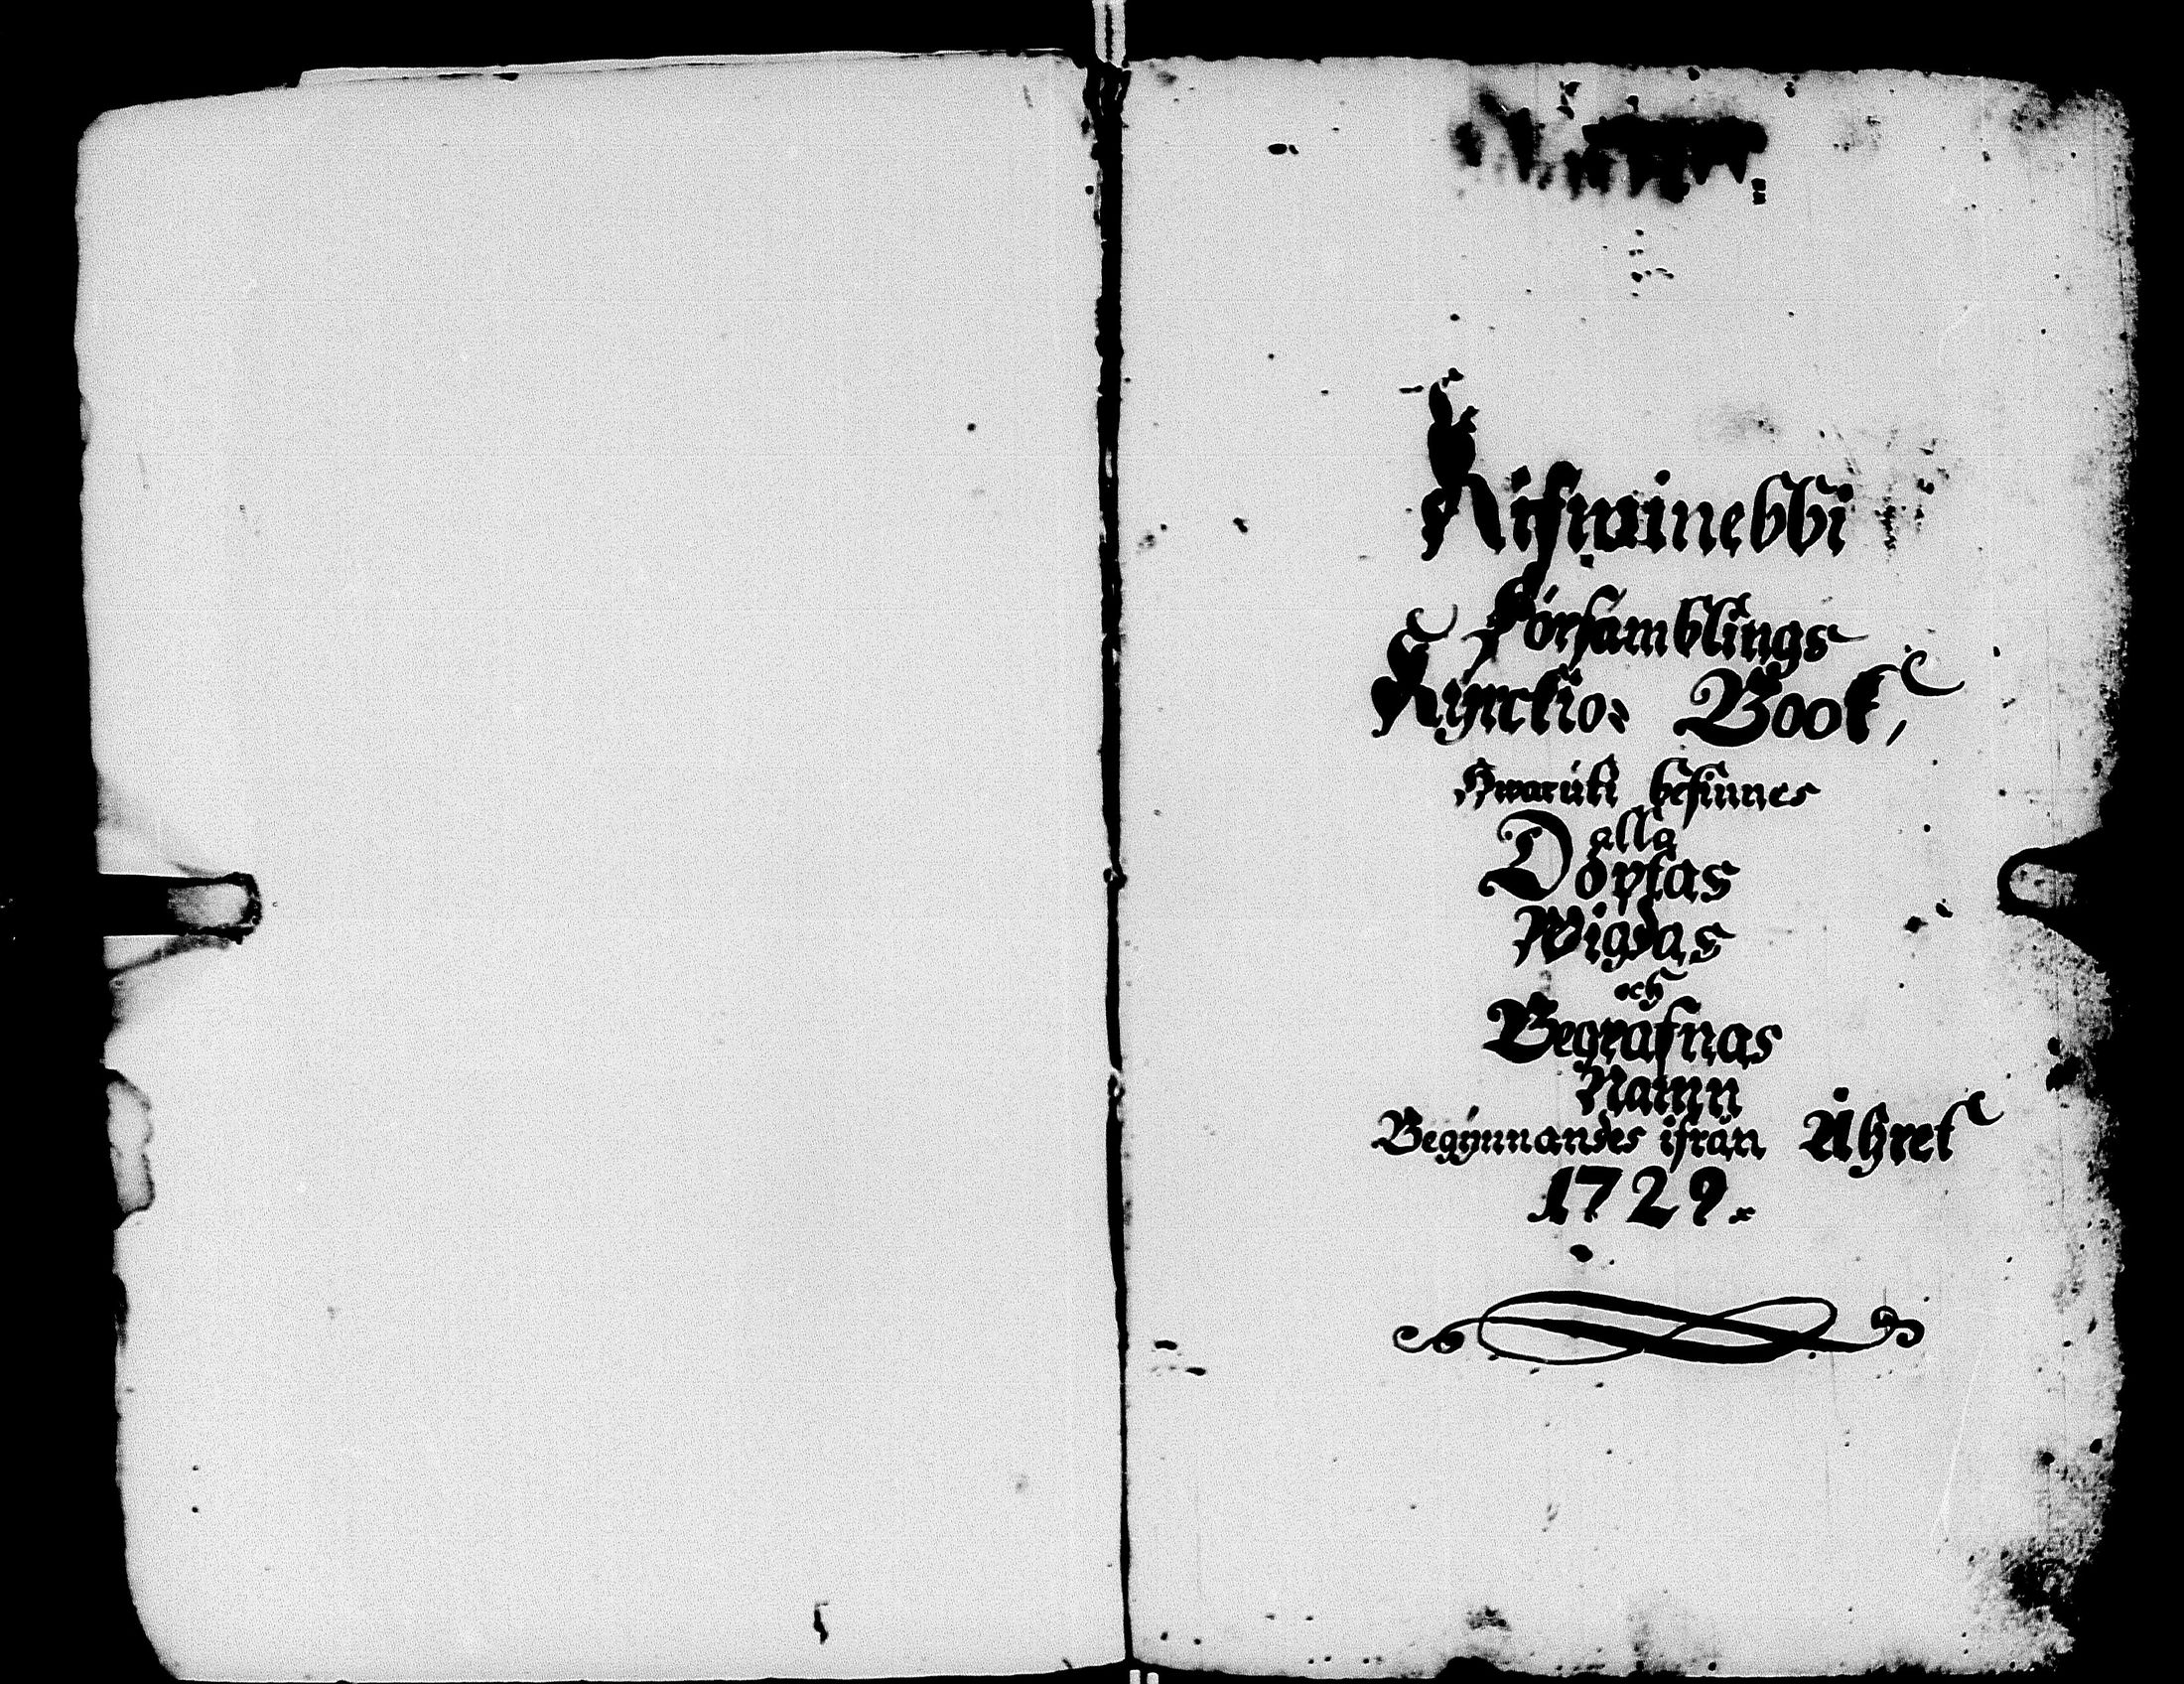 Kifwinebbi
Församblings
Kÿrckio- Book,
Hwaruti befinnes
alla
Döptas
Wigdas
och
Begrafnas
Namn
Begÿnnandes ifrån Åhret
1729.